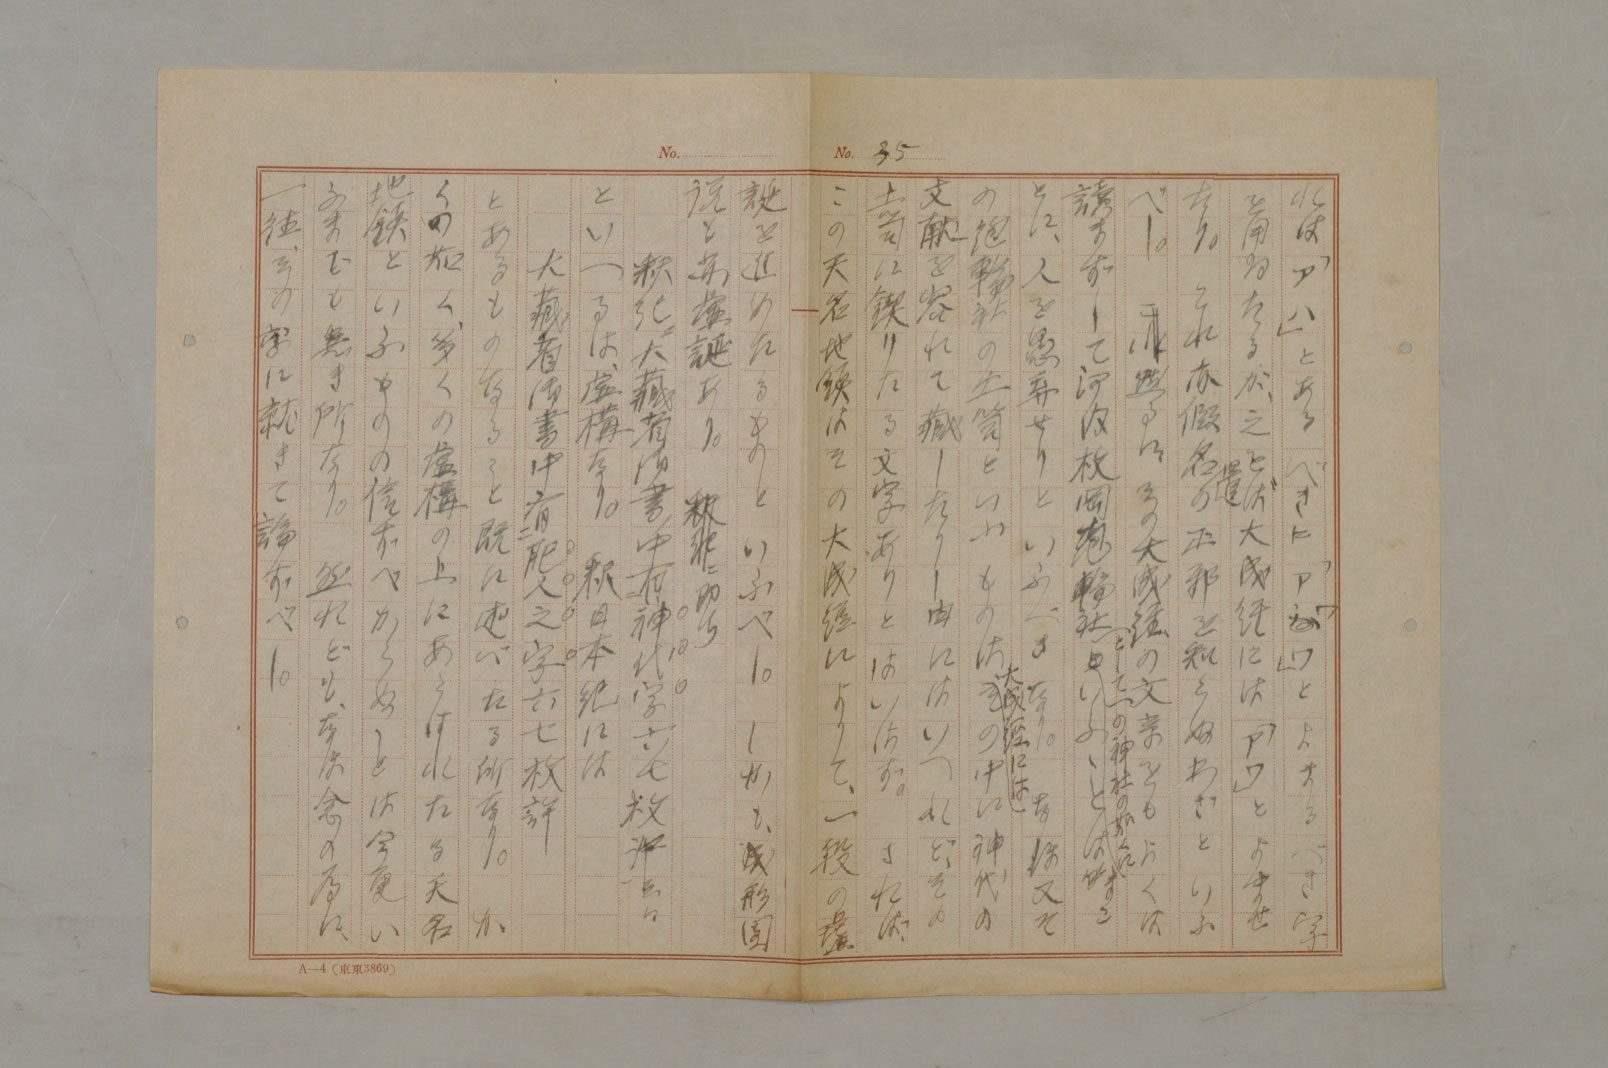 No. 35
れは「アハ」とあるべきに「アワ」とよまるべき字
を用ゐたるが、之とは大成経には「アワ」とよませ
たり。これ亦假名遣の正邪を知らぬわざといふ
べし。然るにその大成経の文章をもよくは
讀まずして河内枚岡泡輪社といふことは
として一の神社の如く
とに、人を愚弄せりといふべきなり。なほ又そ
の泡輪社の土筒といふものは その中に神代の
大成経には
文献を容れて藏したりし由にはいつれど、その
土筒に鍥りたる文字ありとはいはず。されば、
この天名地鎮はその大成経によりて、一段の虚
No.
誕を進めたるものといふべし。しかも、成形圖
説も亦虚誕あり。
釈紀ニ大藏省御書中有神代字六七枚
といへるは、虚構なり。釈日本紀には
大藏省御書中有肥人之字六七枚許
とあるものなること既に述べたる所なり。か
くの如く多くの虚構の上にあらはれたる天名
地鎮といふものの信ずべからぬことは今更い
ふまでも無き所なり。然れども、なほ念の為に、
一往、その字に就きて論ずべし。
A—4 (東東3869)